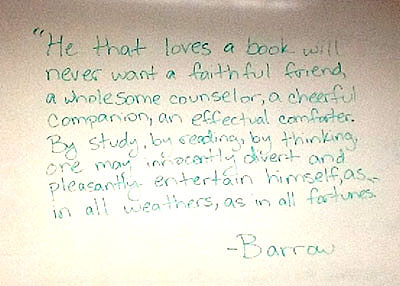 "He that loves a book will
never want a faithful friend,
a wholesome counselor, a cheerful
companion, an effectual comforter.
By study, by reading, by thinking,
one may innocently divert and
pleasantly entertain himself, as
in all weathers, as in all fortunes.
-Barrow